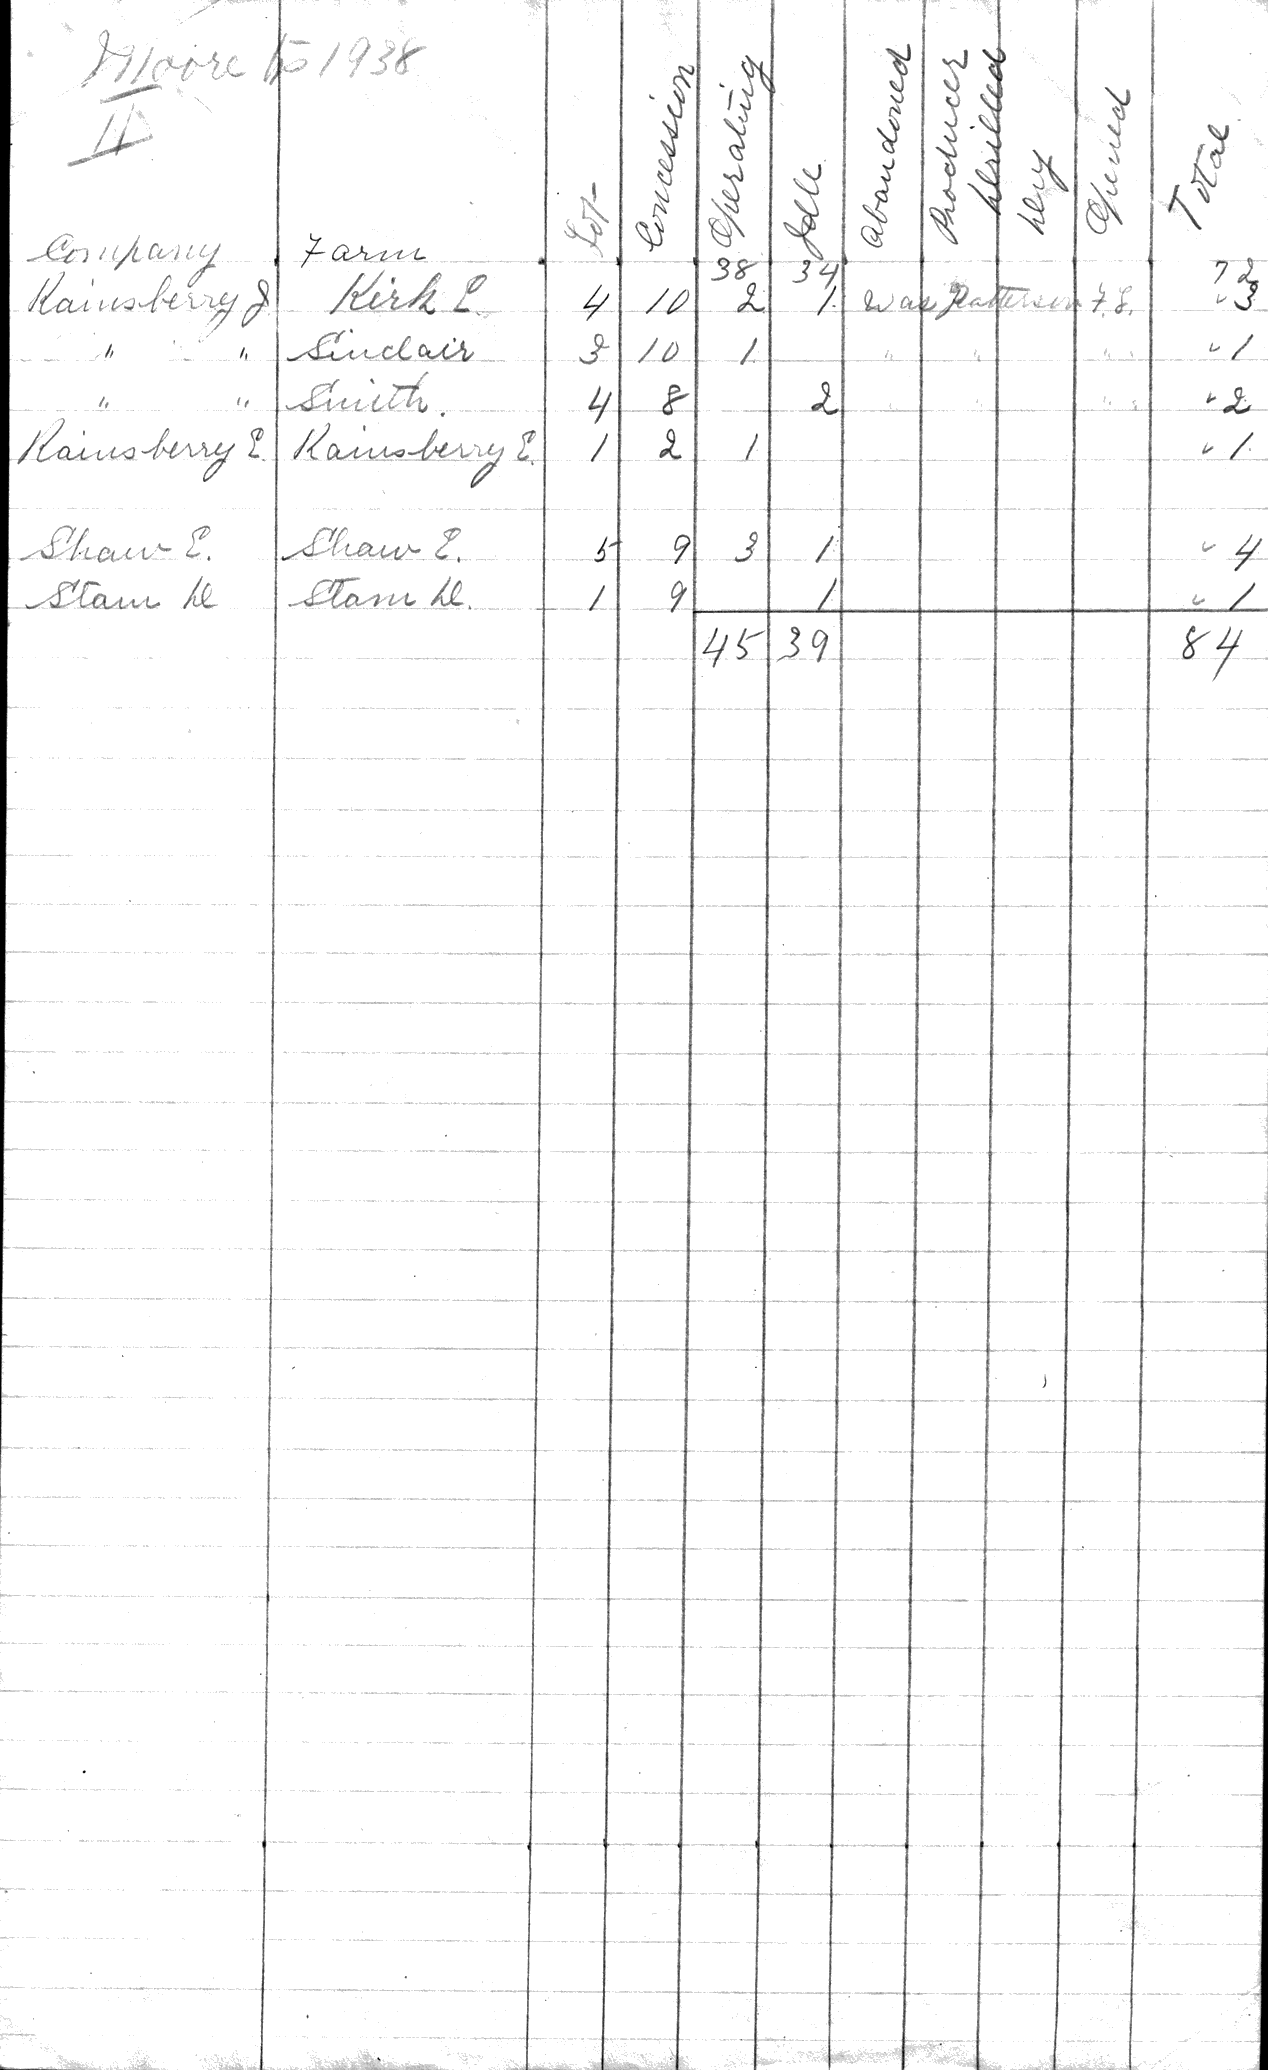 Moore Tp 1938
II
Company Farm Lot Concession Operating Idle Abandoned Producer Drilled Dry Opened Total
38 34 72
Rainsberry J Kirk E. 4 10 2 1 Was Patterson F. L. ✓ 3
" " Sinclair 3 10 1 " " " ✓ 1
" " Smith. 4 8 2 " " " ✓ 2
Rainsberry E. Rainsberry E. 1 2 1 ✓ 1
Shaw E. Shaw E. 5 9 3 1 ✓ 4
Stam D Stam D. 1 9 1 ✓ 1
45 39 84